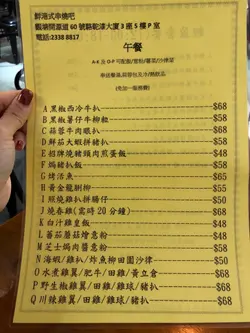 鮮港式串燒吧
觀塘開源道 60 號駱駝漆大廈 3 座 5 樓 P 室
電話:2338 8817
午餐
A-K 及 O-P 可配飯/意粉/薯菜/沙律菜
串送餐湯,蒜蓉包及冷/熱飲品
(免加一服務費)
A 黑椒西冷牛扒 $68
B 黑椒薯仔牛柳粒 $58
C 蒜蓉牛肉眼扒 $68
D 鮮茄大蝦拼豬扒 $58
E 招牌燒豬頸肉煎蛋飯 $48
F 焗豬扒飯 $58
G 烤活魚 $65
H 黃金龍脷柳 $55
I 照燒雞扒拼腸仔 $50
J 燒春雞(需時 20 分鐘) $68
K 白汁雞皇飯 $48
L 蕃茄蘑菇燴意粉 $48
M 芝士焗肉醬意粉 $58
N 海蝦/雞扒/炸魚柳田園沙律 $50
O 水煮雞翼/肥牛/田雞/黃立倉 $68
P 野生椒雞翼/田雞/雞球/豬扒 $68
Q 川辣雞翼/田雞/雞球/豬扒 $68